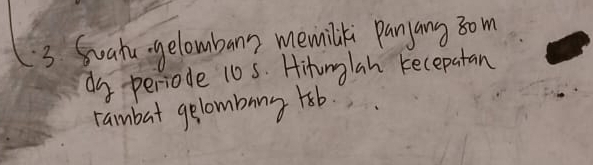 3. Suatu gelombang memiliki panjang 30 m
dg periode 10 s. Hitunglah kecepatan
rambat gelombang tsb.